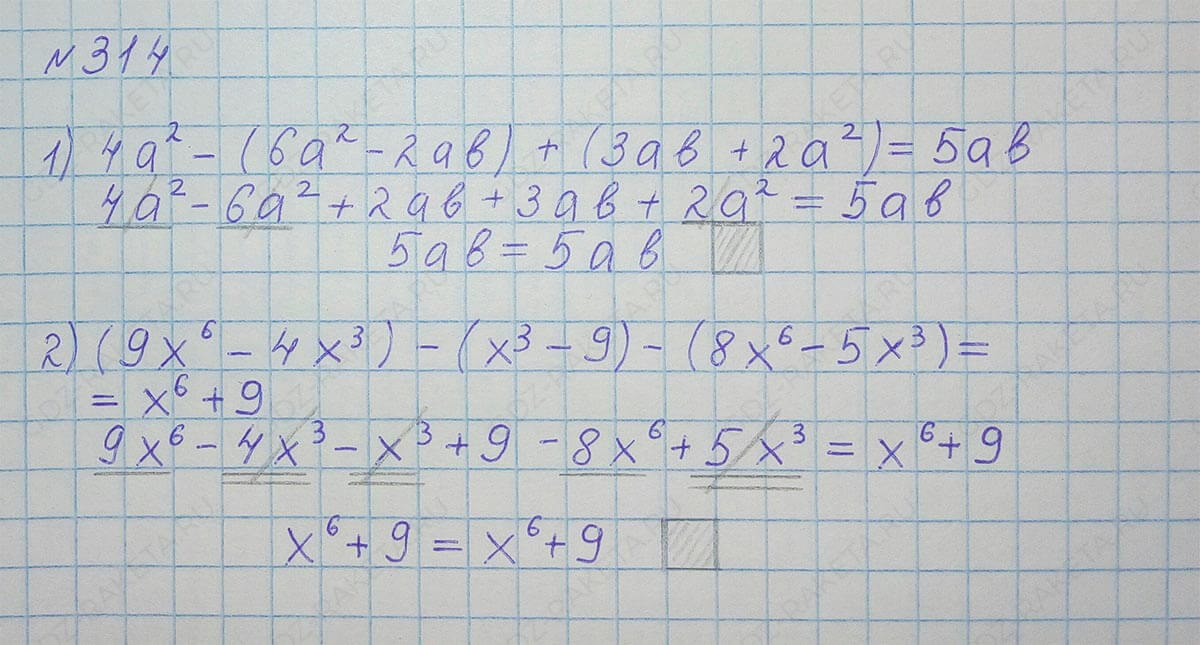 № 314
1) 4a² - (6a² - 2aв) + (3aв + 2a²) = 5aв
4a² - 6a² + 2aв + 3aв + 2a² = 5aв
5aв = 5aв
2) (9x⁶ - 4x³) - (x³ - 9) - (8x⁶ - 5x³) =
= x⁶ + 9
9x⁶ - 4x³ - x³ + 9 - 8x⁶ + 5x³ = x⁶ + 9
x⁶ + 9 = x⁶ + 9
GDZ-RAKETA.RU